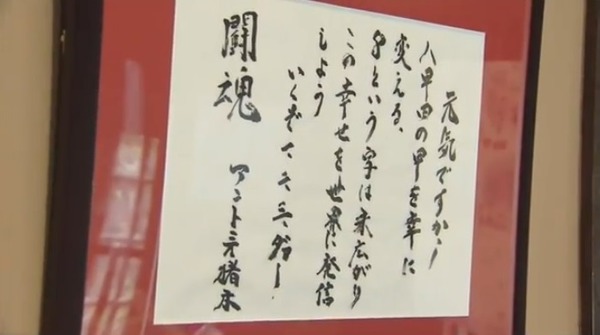 元気ですか！
八甲田の甲を幸に
変える、
8という字は末広がり
この幸せを世界に発信
しよう
いくぞ 一、二、三、ダー！
闘魂 アントニオ猪木